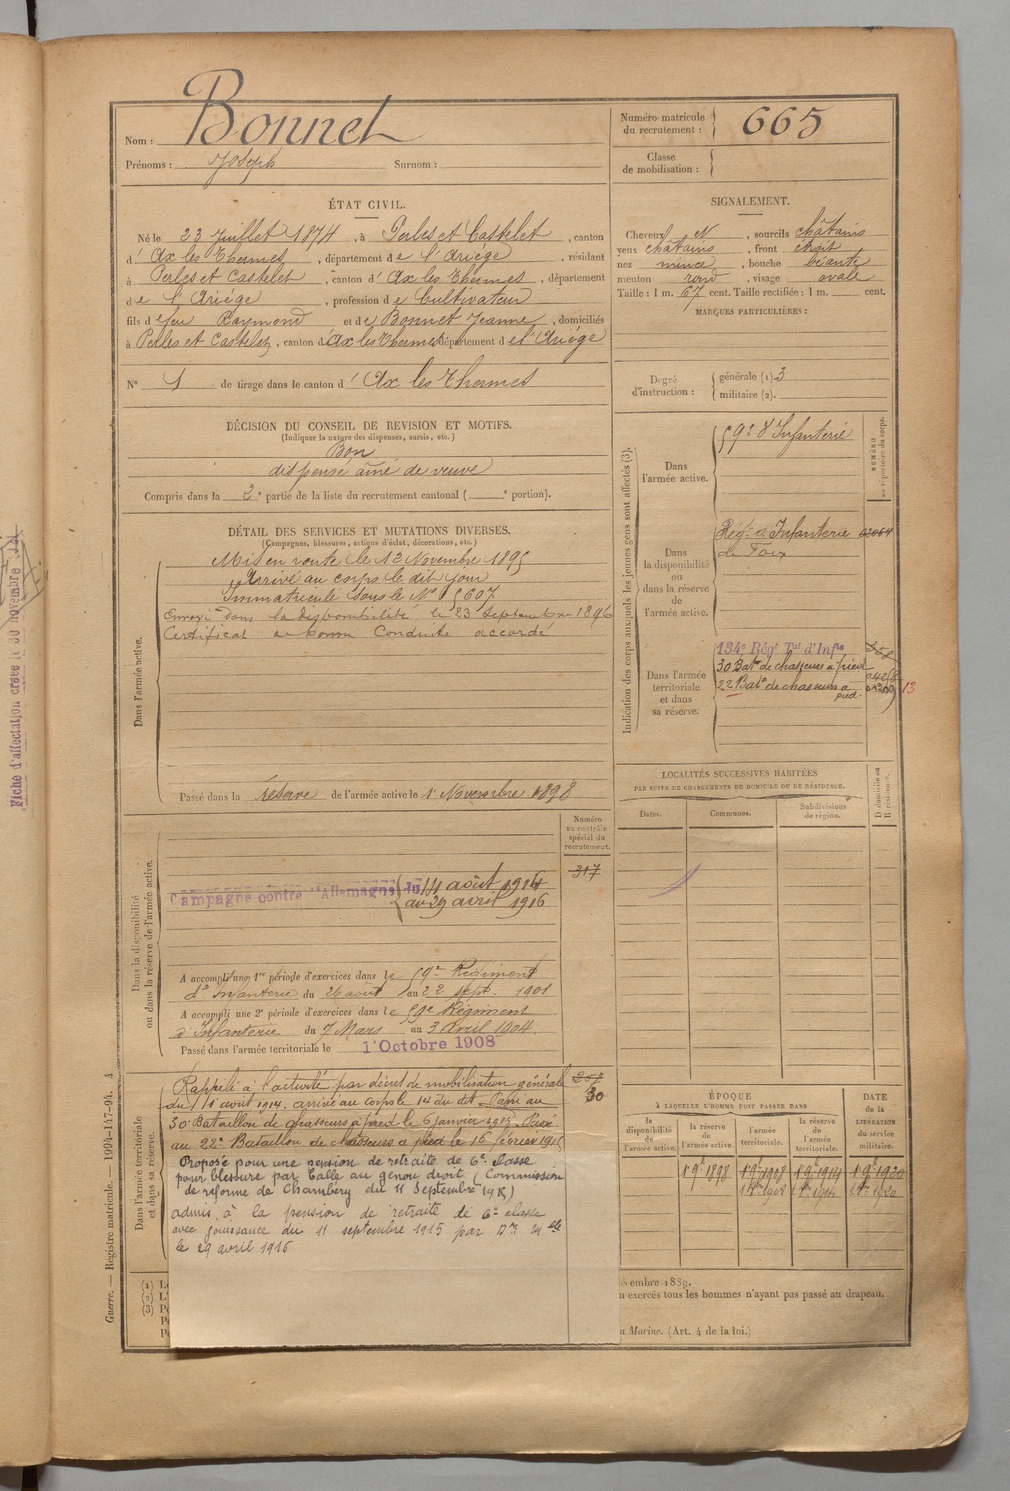 Nom : Bonnet
Prénoms : Joseph Surnom :
Numéro matricule du recrutement : 665
Classe de mobilisation :
ÉTAT CIVIL.
Né le 23 Juillet 1874, à Perles et Castelet, canton
d' Ax les Thermes, département de l'Ariége, résidant
à Perles et Castelet, canton d' Ax les Thermes, département
de l'Ariége, profession de Cultivateur
fils de feu Raymond et de Bonnet Jeanne, domiciliés
à Perles et Castelet, canton d'Ax les Thermes département de l'Ariége
N° 1 de tirage dans le canton d' Ax les Thermes
SIGNALEMENT.
Cheveux N, sourcils châtains
yeux châtains, front étroit
nez mince, bouche béante
menton rond, visage ovale
Taille : 1 m. 67 cent. Taille rectifiée : 1 m. cent.
MARQUES PARTICULIÈRES :
Degré d'instruction : générale (1). 3
militaire (2).
DÉCISION DU CONSEIL DE REVISION ET MOTIFS.
(Indiquer la nature des dispenses, sursis, etc.)
Bon
dispensé aîné de veuve
Compris dans la 2e partie de la liste du recrutement cantonal ( e portion).
DÉTAIL DES SERVICES ET MUTATIONS DIVERSES.
(Campagnes, blessures, actions d'éclat, décorations, etc.)
Dans l'armée active.
Mis en route le 12 Novembre 1895
Arrivé au corps le dit jour
Immatriculé sous le N° 5607
Envoyé dans la disponibilité le 23 Septembre 1896
Certificat de bonne Conduite accordé
Passé dans la réserve de l'armée active le 1r Novembre 1898
Indication des corps auxquels les jeunes gens sont affectés (3).
NUMÉRO au répertoire du corps.
Dans l'armée active.
59e d'Infanterie
Dans la disponibilité ou dans la réserve de l'armée active.
Régt d'Infanterie
de Foix
Dans l'armée territoriale et dans sa réserve.
134e Régt Tal d'Infie
30 Baton de chasseurs à pied
22 Baton de chasseurs à pied
13
LOCALITÉS SUCCESSIVES HABITÉES
PAR SUITE DE CHANGEMENTS DE DOMICILE OU DE RÉSIDENCE.
Dates. Communes. Subdivisions de région. D domicile ou R résidence.
Dans la disponibilité ou dans la réserve de l'armée active.
Numéro au contrôle spécial du recrutement.
317
Campagne contre l'Allemagne du 14 août 1914
au 29 avril 1916
A accompli une 1re période d'exercices dans le 59e Régiment
d'Infanterie du 26 août au 22 sept. 1901
A accompli une 2e période d'exercices dans le 59e Régiment
d'Infanterie du 7 Mars au 3 Avril 1904
Passé dans l'armée territoriale le 1r Octobre 1908
Dans l'armée territoriale et dans sa réserve.
Rappelé à l'activité par décret de mobilisation générale
du 1r août 1914. arrivé au corps le 14 du dit. Passé au
30e Bataillon de chasseurs à pied le 6 janvier 1915. Passé
au 22e Bataillon de chasseurs à pied le 16 février 1915
30
Proposé pour une pension de retraite de 6e classe
pour blessure par balle au genou droit (Commission
de réforme de Chambéry du 11 Septembre 1915)
admis à la pension de retraite de 6e classe
avec jouissance du 11 septembre 1915 par Don Melle
le 29 avril 1916
ÉPOQUE
À LAQUELLE L'HOMME DOIT PASSER DANS
la disponibilité de l'armée active. la réserve de l'armée active. l'armée territoriale. la réserve de l'armée territoriale.
DATE de la LIBÉRATION du service militaire.
1 9e 1898 1 9e 1908 1 9e 1914 1 9e 1920
1908 1914 1920
(1)
(2)
(3)
embre 1889.
n exercés tous les hommes n'ayant pas passé au drapeau.
a Marine. (Art. 4 de la loi.)
Guerre. — Registre matricule. — 1194-147-94. 4
Fiche d'affectation créée le 30 novembre